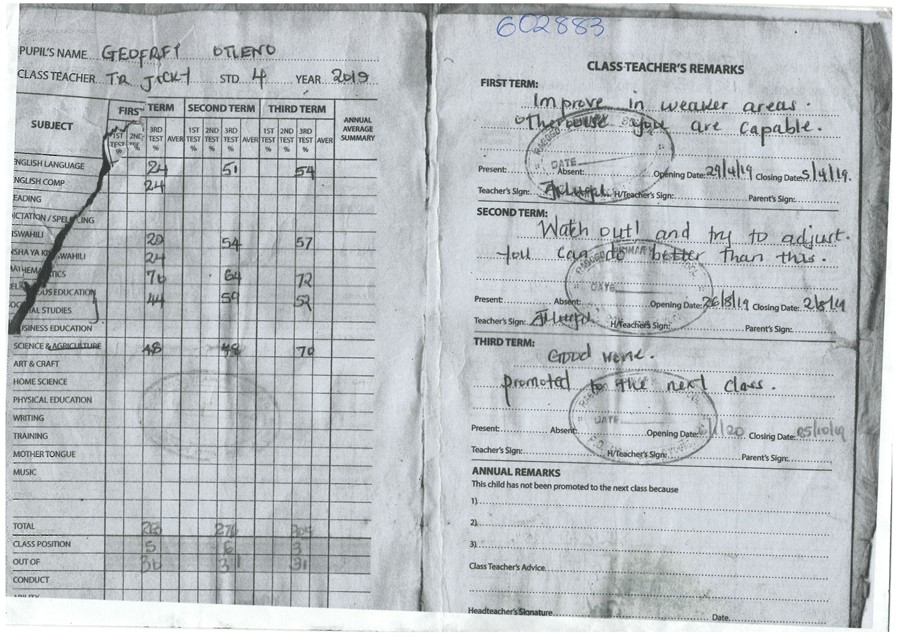 602883
PUPIL'S NAME GEOFREY OTIENO
CLASS TEACHER TR JACKY STD. 4 YEAR 2019
SUBJECT FIRST TERM SECOND TERM THIRD TERM ANNUAL AVERAGE SUMMARY
1ST TEST % 2ND % 3RD TEST % AVER 1ST TEST % 2ND TEST % 3RD TEST % AVER 1ST TEST % 2ND TEST % 3RD TEST % AVER
ENGLISH LANGUAGE 24 51 54
NGLISH COMP 24
EADING
ICTATION / SPELLING
ISWAHILI 20 54 57
NSHA YA KISWAHILI 24
MATHEMATICS 76 64 72
OUS EDUCATION 44 59 52
AL STUDIES
USINESS EDUCATION
SCIENCE & AGRICULTURE 48 48 70
ART & CRAFT
HOME SCIENCE
PHYSICAL EDUCATION
WRITING
TRAINING
MOTHER TONGUE
MUSIC
TOTAL 276
CLASS POSITION 5 6 3
OUT OF 31
CONDUCT
CLASS TEACHER'S REMARKS
FIRST TERM:
Improve in weaker areas.
Otherwise you are capable.
DATE
Present: Absent: Opening Date: 29/4/19 Closing Date: 5/4/19.
Teacher's Sign: H/Teacher's Sign: Parent's Sign:
SECOND TERM:
Watch out! and try to adjust.
You can do better than this.
PRIMARY
DATE
Present: Absent: Opening Date: 26/8/19 Closing Date: 2/8/19
Teacher's Sign: H/Teacher's Sign: Parent's Sign:
THIRD TERM:
Good work.
promoted to the next class.
DATE
Present: Absent: Opening Date: Closing Date: 05/10/19
Teacher's Sign: H/Teacher's Sign: Parent's Sign:
ANNUAL REMARKS
This child has not been promoted to the next class because
1)
2)
3)
Class Teacher's Advice
Headteacher's Signature Date